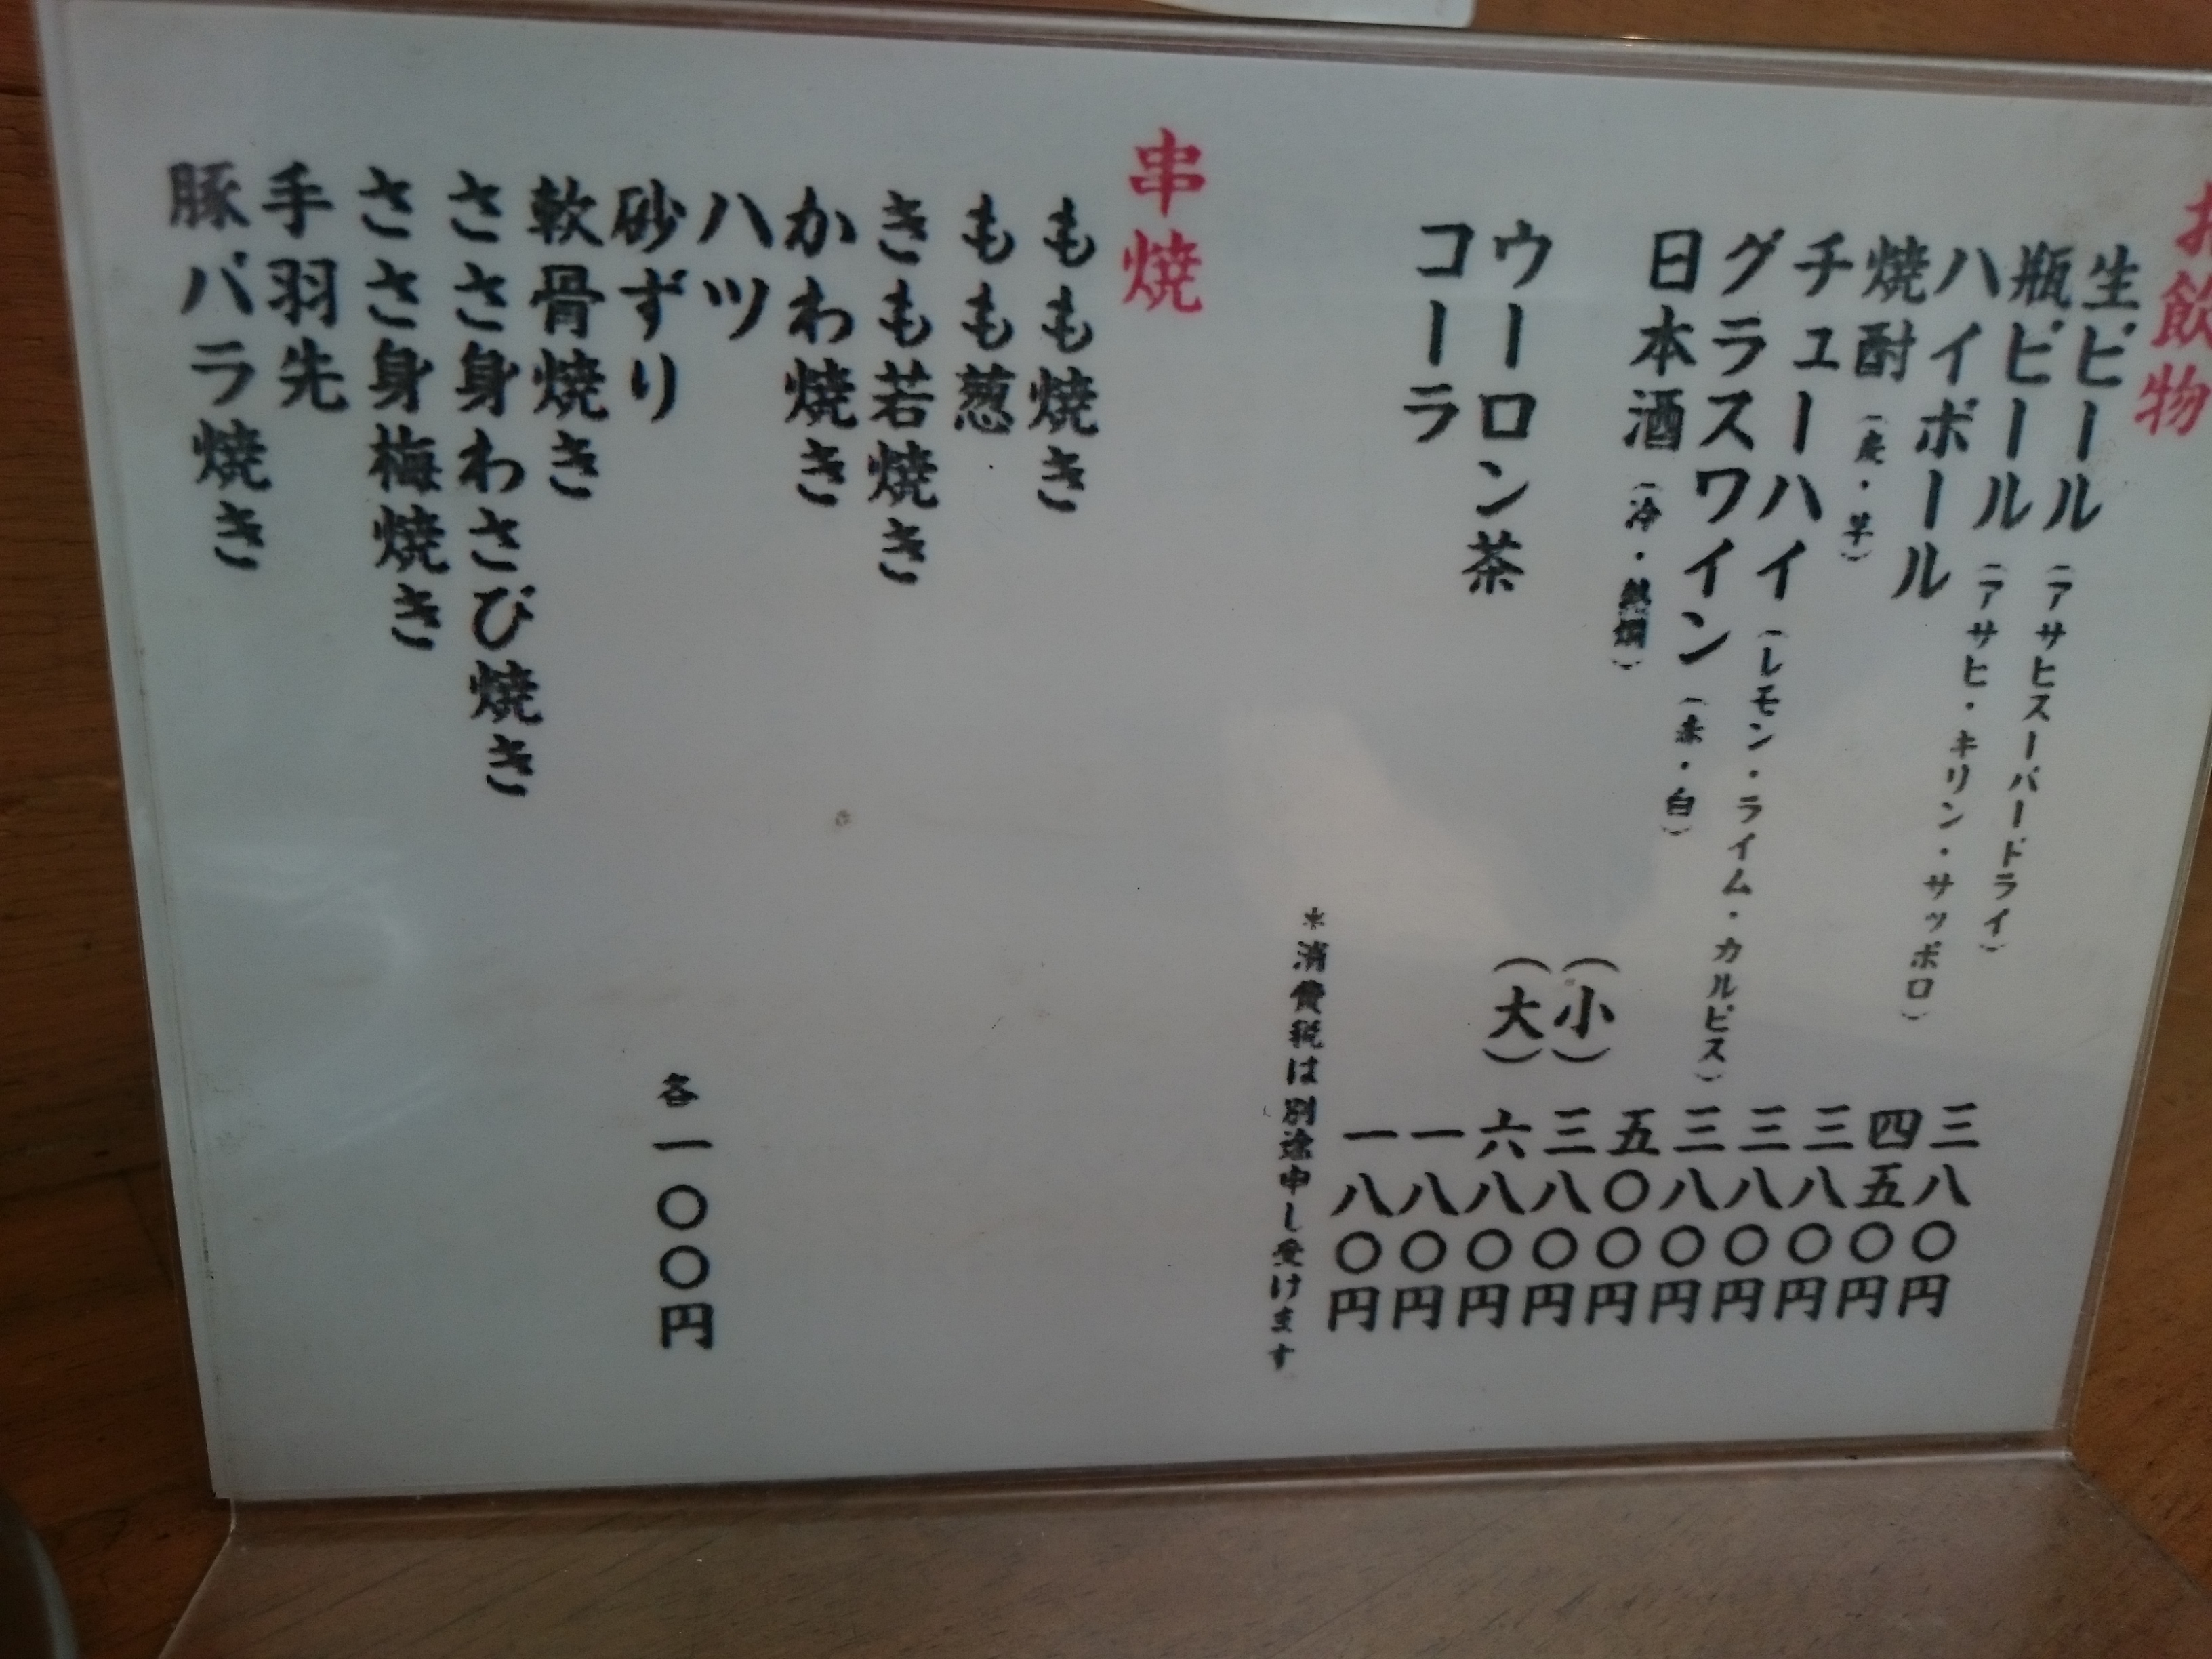 飲物
生ビール（アサヒスーパードライ） 三八〇円
瓶ビール（アサヒ・キリン・サッポロ） 四五〇円
ハイボール 三八〇円
焼酎（麦・芋） 三八〇円
チューハイ（レモン・ライム・カルピス） 三八〇円
グラスワイン（赤・白） 五〇〇円
日本酒（冷・熱燗）（小） 三八〇円
（大） 六八〇円
ウーロン茶 一八〇円
コーラ 一八〇円
＊消費税は別途申し受けます
串焼
もも焼き
もも葱
きも若焼き
かわ焼き
ハツ
砂ずり
各一〇〇円
軟骨焼き
ささ身わさび焼き
ささ身梅焼き
手羽先
豚バラ焼き